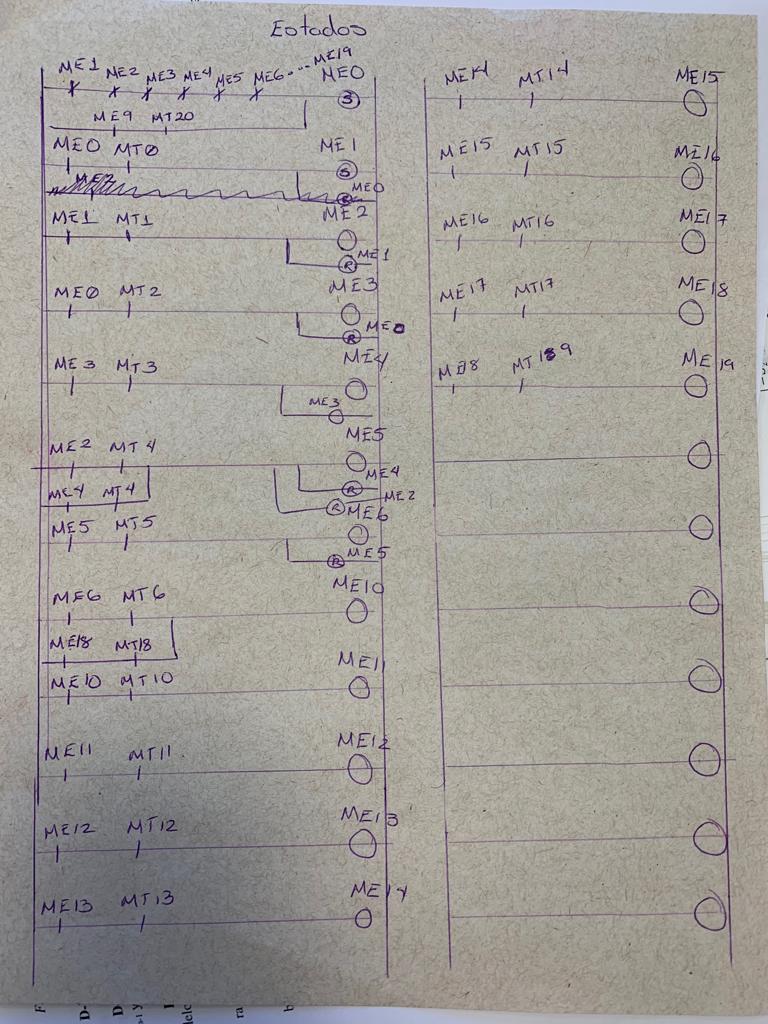 Estados
ME1 ME2 ME3 ME4 ME5 ME6 .... ME19 ME0
S
ME9 MT20
ME0 MTØ ME1
S
R ME0
ME1 MT1 ME2
R ME1
MEØ MT2 ME3
R
ME3 MT3 ME4
ME3
ME2 MT4 ME5
R ME4
ME4 MT4 R ME2
ME5 MT5 ME6
R ME5
ME6 MT6 ME10
ME18 MT18
ME10 MT10 ME11
ME11 MT11 ME12
ME12 MT12 ME13
ME13 MT13 ME14
ME14 MT14 ME15
ME15 MT15 ME16
ME16 MT16 ME17
ME17 MT17 ME18
ME18 ME19